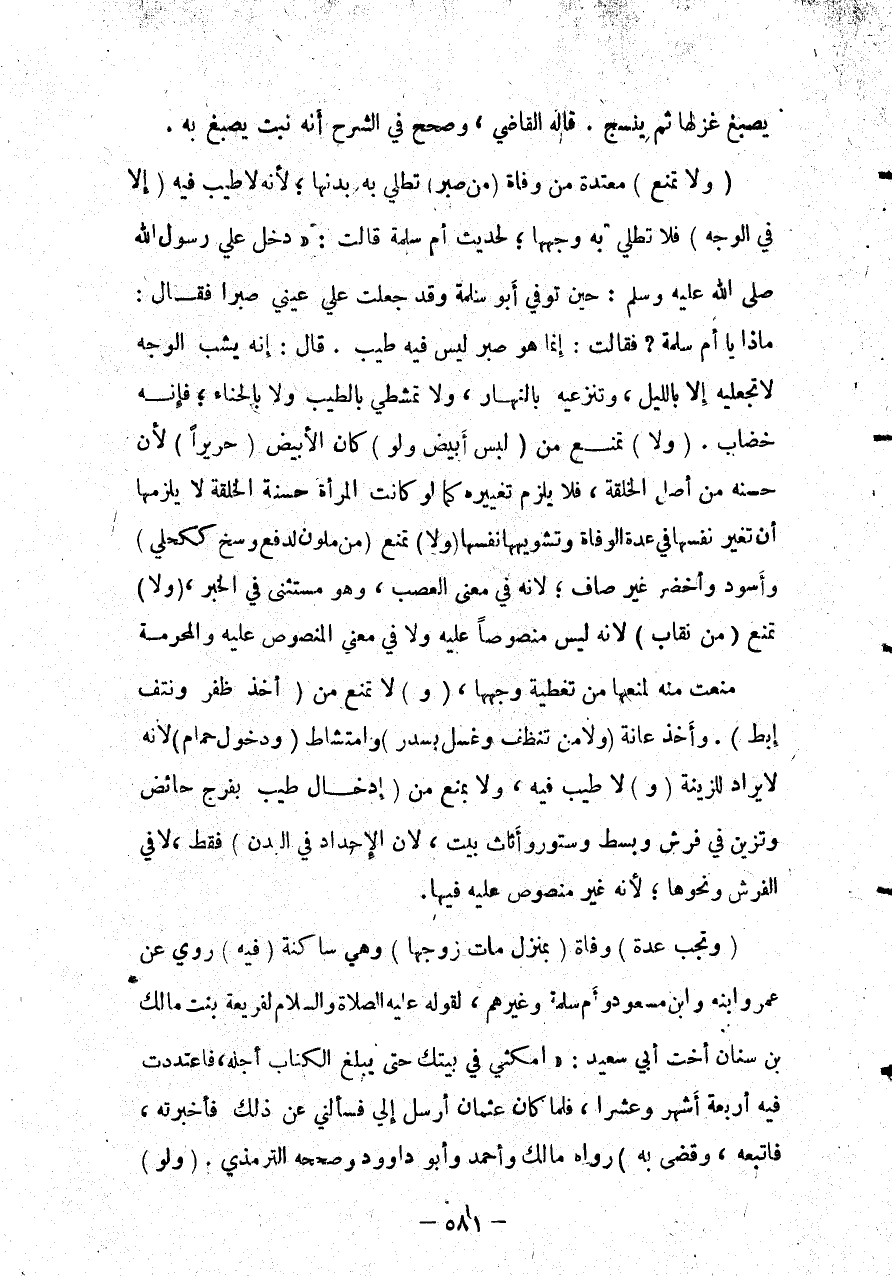 يصبغ غزلها ثم ينسج . قاله القاضي ، وصحح في الشرح أنه نبت يصبغ به .
( ولا تمنع ) معتدة من وفاة ( من صبر ) تطلي به بدنها ؛ لأنه لا طيب فيه ( إلا
في الوجه ) فلا تطلي به وجهها ؛ لحديث أم سلمة قالت : « دخل علي رسول الله
صلى الله عليه وسلم : حين توفي أبو سلمة وقد جعلت علي عيني صبرا فقــال :
ماذا يا أم سلمة ? فقالت : إنما هو صبر ليس فيه طيب . قال : إنه يشب الوجه
لا تجعليه إلا بالليل ، وتنزعيه بالنهار ، ولا تمشطي بالطيب ولا بالحناء ؛ فإنــه
خضاب . ( ولا ) تمنــع من ( لبس أبيض ولو ) كان الأبيض ( حريراً ) لأن
حسنه من أصل الخلقة ، فلا يلزم تغييره كما لو كانت المرأة حسنة الخلقة لا يلزمها
أن تغير نفسها في عدة الوفاة وتشويهها نفسها (ولا) تمنع (من ملون لدفع وسخ ككحلي )
وأسود وأخضر غير صاف ؛ لانه في معنى العصب ، وهو مستثنى في الخبر ،(ولا)
تمنع ( من نقاب ) لانه ليس منصوصاً عليه ولا في معني المنصوص عليه والمحرمــة
منعت منه لمنعها من تغطية وجهها ، ( و ) لا تمنع من ( أخذ ظفر ونتف
إبط ) . وأخذ عانة (ولا من تنظف وغسل بسدر )وامتشاط ( ودخول حمام)لأنه
لا يراد للزينة ( و ) لا طيب فيه ، ولا يمنع من ( إدخــال طيب بفرج حائض
وتزين في فرش وبسط وستور وأثاث بيت ، لان الإحداد في البدن ) فقط ،لا في
الفرش ونحوها ؛ لأنه غير منصوص عليه فيها.
( وتجب عدة ) وفاة ( بمنزل مات زوجها ) وهي ساكنة ( فيه ) روي عن
عمر وابنه وابن مسعود وأم سلمة وغيرهم ، لقوله عليه الصلاة والسلام لفريعة بنت مالك
بن سنان أخت أبي سعيد : « امكثي في بيتك حتى يبلغ الكتاب أجله،فاعتددت
فيه أربعة أشهر وعشرا ، فلما كان عثمان أرسل إلي فسألني عن ذلك فأخبرته ،
فاتبعه ، وقضى به ) رواه مالك وأحمد وأبو داوود وصححه الترمذي . ( ولو )
– ٥٨١ –